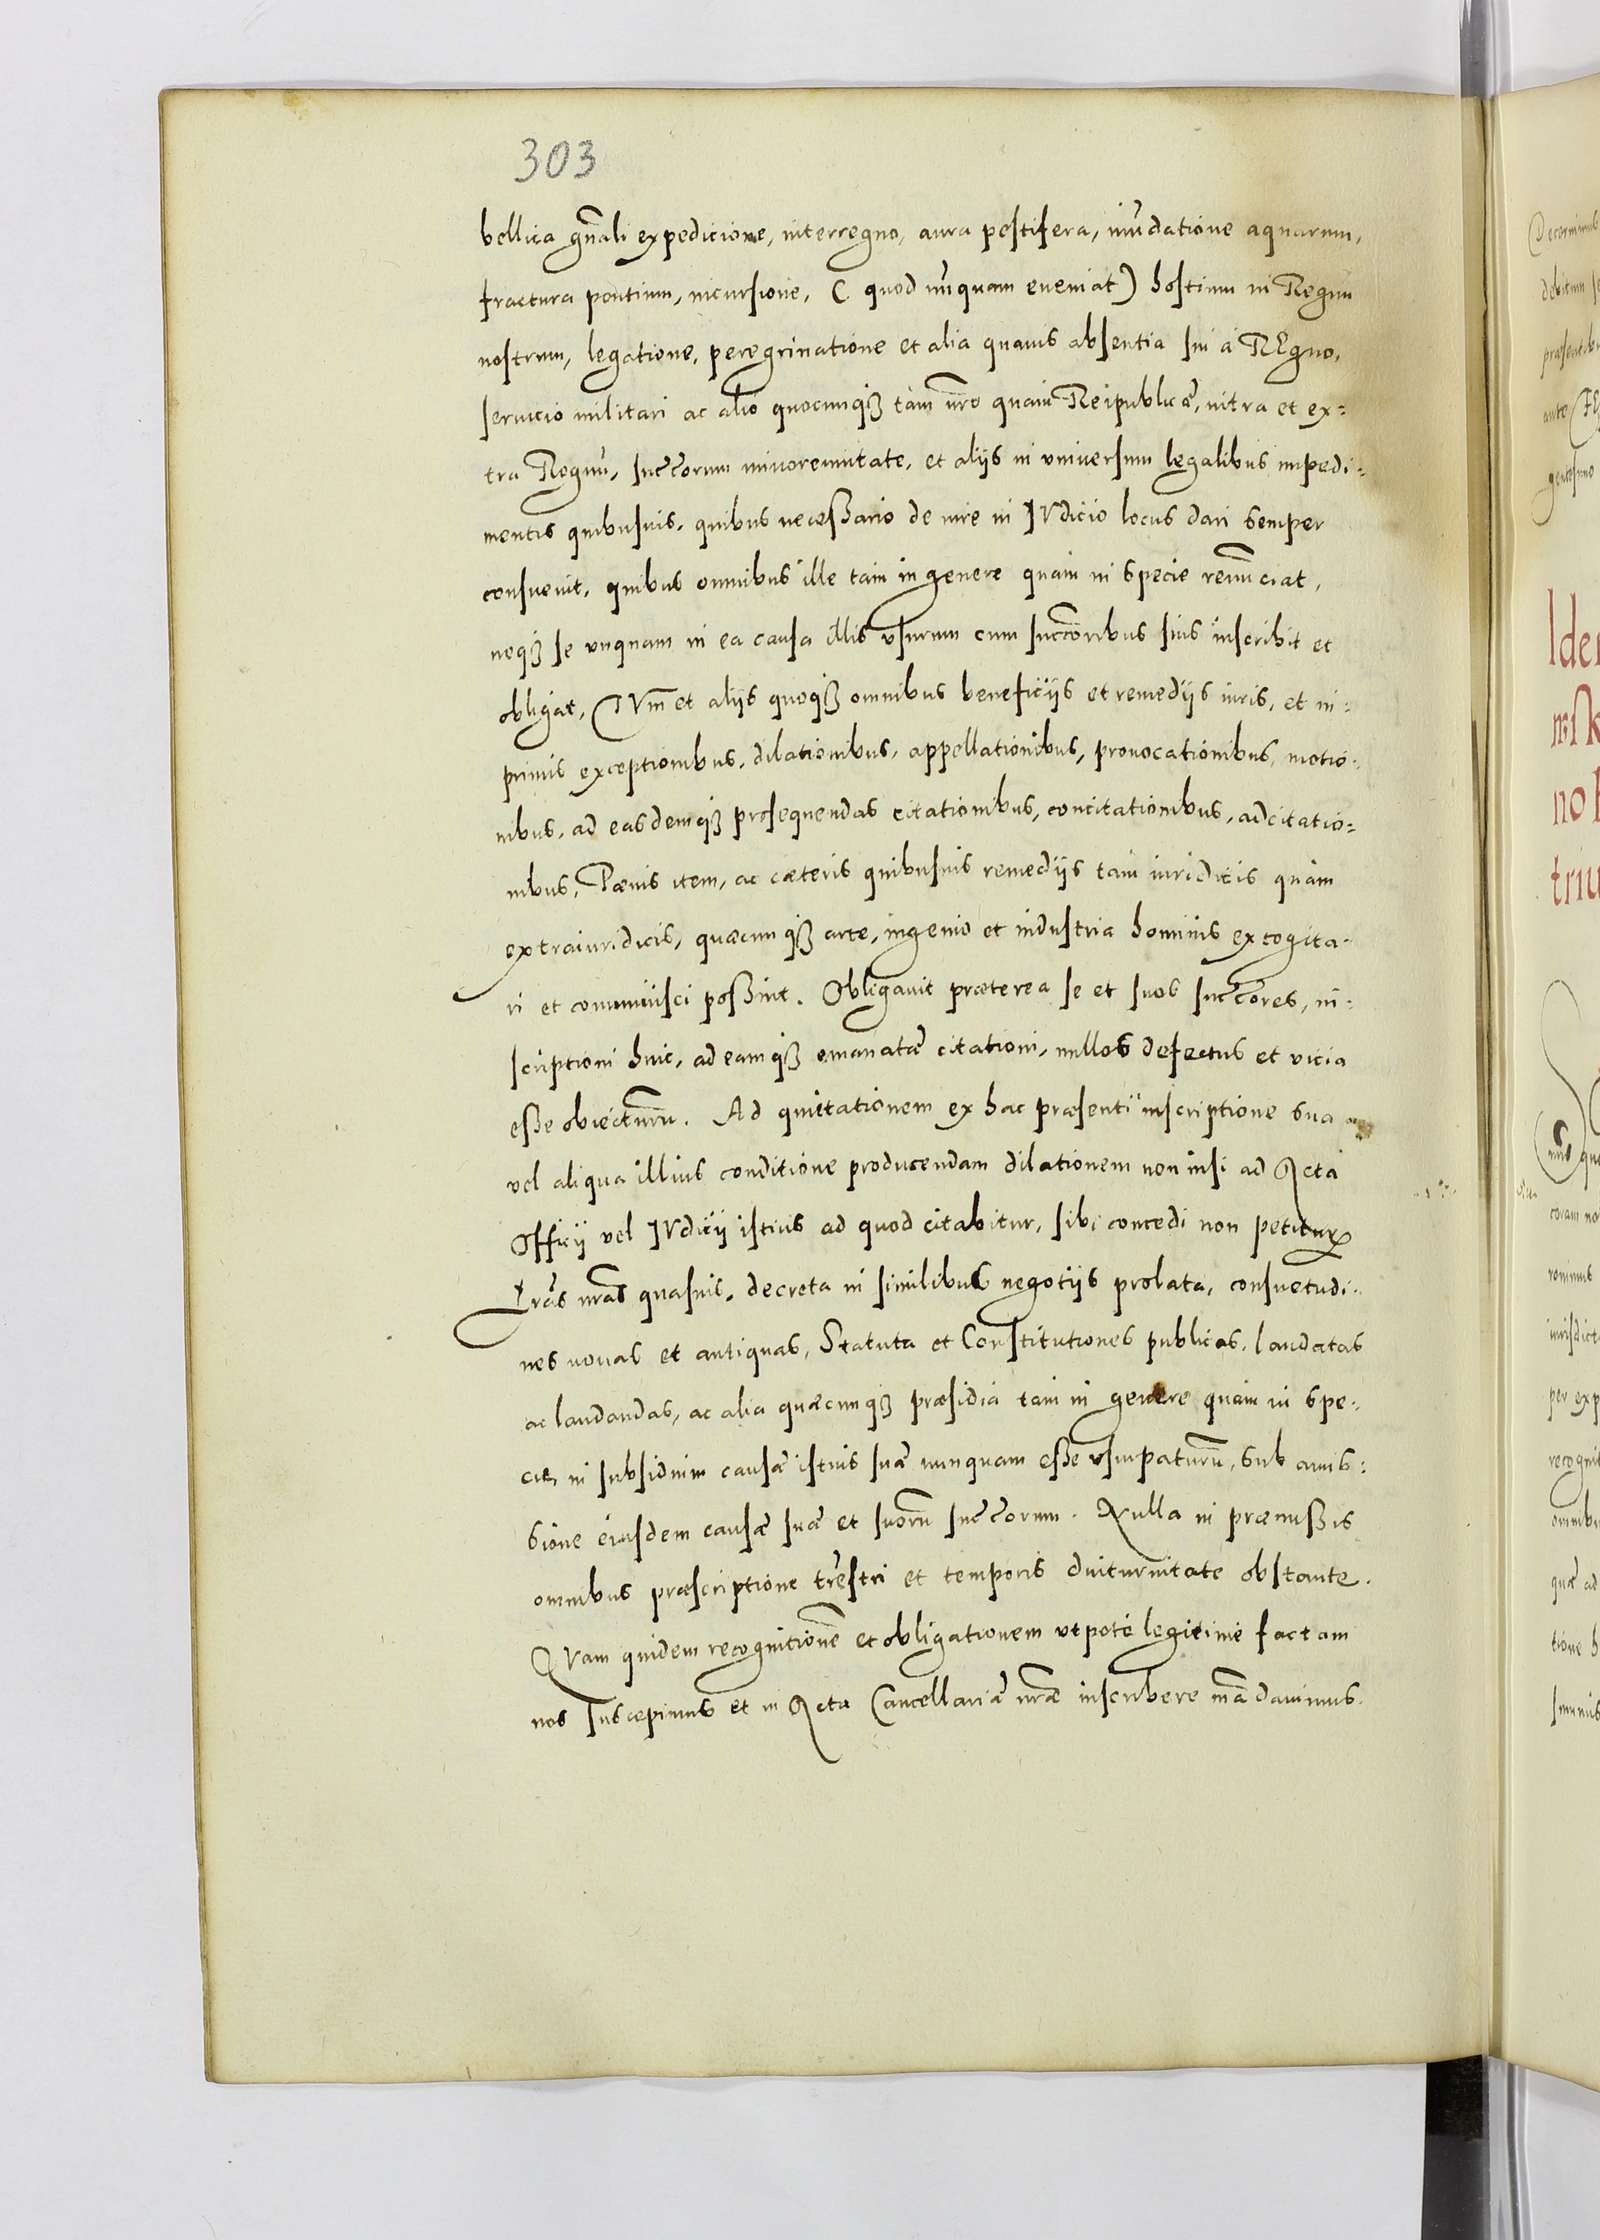 303
bellica gñali expedicione, interregno, aura pestifera, inūdatione aquarum,
fractura pontium, incursione, ( quod nūquam eueniat) hostium in Regnū
nostrum, legatione, peregrinatione et alia quauis absentia sui à REgno,
seruicio militari ac alio quocunqȝ tam nr̃o quam Reipublicæ, intra et ex-
tra Regnū, succ̃orum minorennitate, et aliis in vniuersum legalibus impedi-
mentis quibusuis, quibus necessario de iure in IVdicio locus dari semper
consueuit, quibus omnibus ille tam in genere quam in specie renūciat,
neqȝ se vnquam in ea causa illis vsurum cum succ̃oribus suis inscribit et
obligat, TVm et aliis quoqȝ omnibus beneficiis et remediis iuris, et in-
primis exceptionibus, dilationibus, appellationibus, prouocationibus, motio-
nibus, ad easdemqȝ prosequendas citationibus, concitationibus, adcitatio-
nibus, Pænis item, ac cæteris quibusuis remediis tam iuridicis quam
extraiuridicis, quæcunqȝ arte, ingenio et industria hominis excogita-
ri et comminisci possint. Obligauit præterea se et suos succ̃ores, in-
scriptioni huic, ad eamqȝ emanatæ citationi, nullos defectus et vicia
esse obiecturū. Ad quitationem ex hac præsenti inscriptione sua
vel aliqua illius conditione producendam dilationem non nisi ad Acta
Officii vel IVdicii istius ad quod citabitur, sibi concedi non petiturū
Lr̃as nr̃as quasuis, decreta in similibus negotiis prolata, consuetudi-
nes nouas et antiquas, Statuta et Constitutiones publicas, laudatas
ac laudandas, ac alia quæcunqȝ præsidia tam in genere quam in spe-
cie, in subsidium causæ istius suæ nunquam esse vsurpaturū, sub amis-
sione eiusdem causæ suæ et suorū succ̃orum. Nulla in præmissis
omnibus præscriptione tr̃estri et temporis diuturnitate obstante.
QVam quidem recognitionē et obligationem vtpote legitime factam
nos suscepimus et in Acta Cancellariæ nr̃æ inscribere mādauimus.